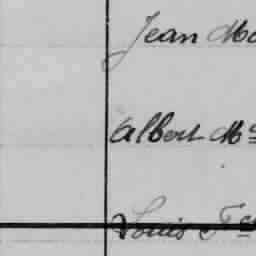 Jean Mc
Albert Mc
Louis